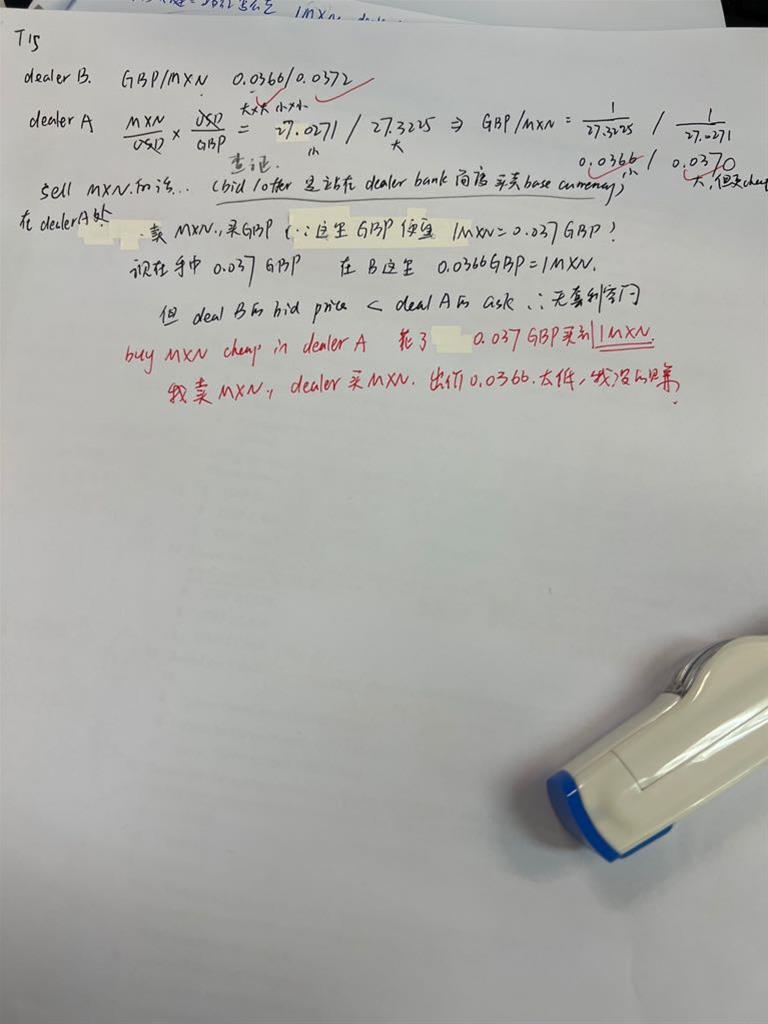 T15
dealer B. GBP/MXN 0.0366/0.0372
大×大 小×小
dealer A MXN/USD × USD/GBP = 27.0271 / 27.3225 ⇒ GBP/MXN = 1/27.3225 / 1/27.0271
小 大
查证. 0.0366 小 / 0.0370
sell MXN. (bid/offer 是站在 dealer bank 角度 买卖 base currency) 大, 但更cheap
在 dealer A 处 卖 MXN., 买GBP (∵ 这里 GBP 便宜 1MXN = 0.037 GBP)
现在手中 0.037 GBP 在 B 这里 0.0366GBP = 1MXN.
但 deal B的 bid price < deal A的 ask ∴ 无套利空间
buy MXN cheap in dealer A 花了 0.037 GBP买到 1MXN.
我卖 MXN., dealer 买MXN. 出价 0.0366. 太低, 我没的赚